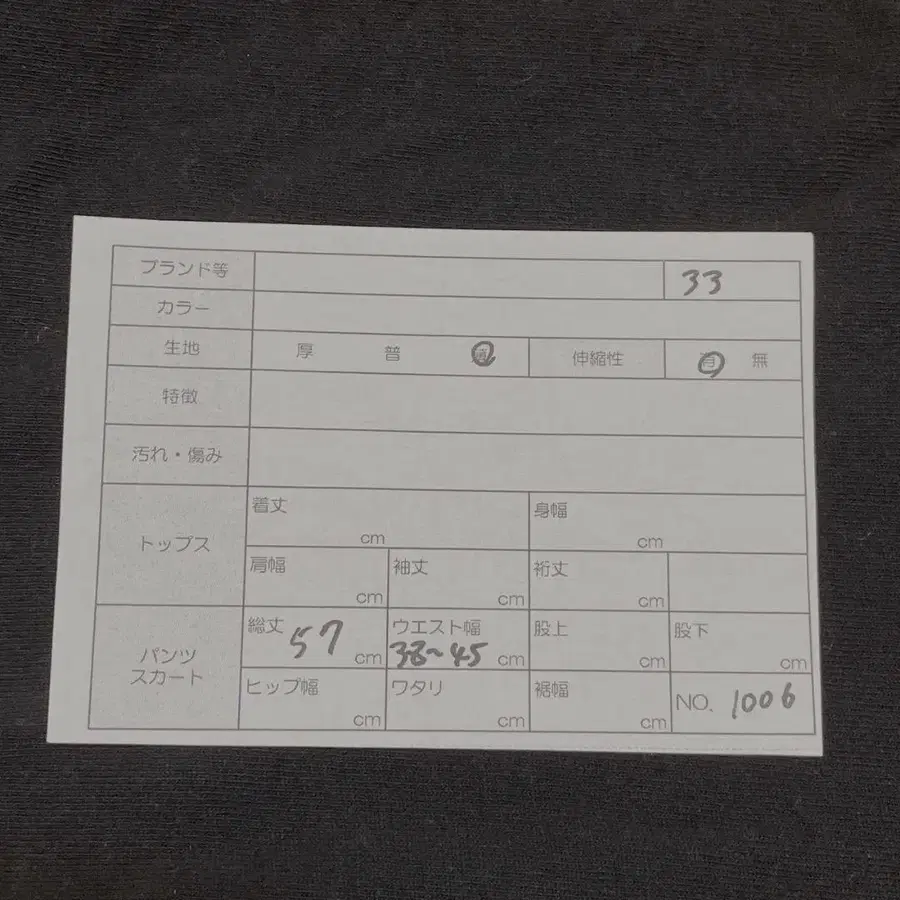 ブランド等 33
カラー
生地 厚 普 薄 伸縮性 有 無
特徴
汚れ・傷み
トップス
着丈 cm 身幅 cm
肩幅 cm 袖丈 cm 裄丈 cm
パンツ
スカート
総丈 57 cm ウエスト幅 38~45 cm 股上 cm 股下 cm
ヒップ幅 cm ワタリ cm 裾幅 cm NO. 1006